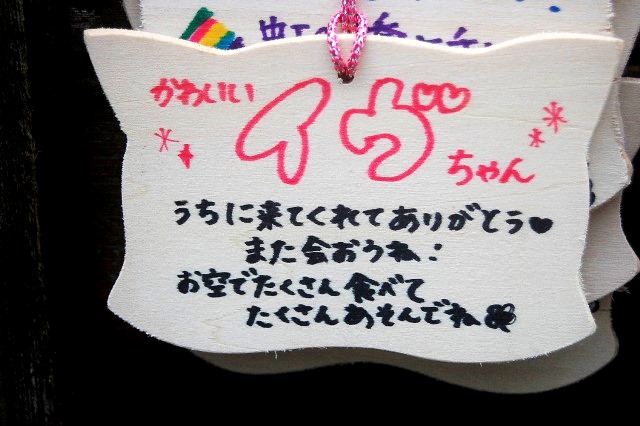 かわいい
イヴ♡♡
ちゃん
うちに来てくれてありがとう♥
また会おうね!
お空でたくさん食べて
たくさんあそんでね